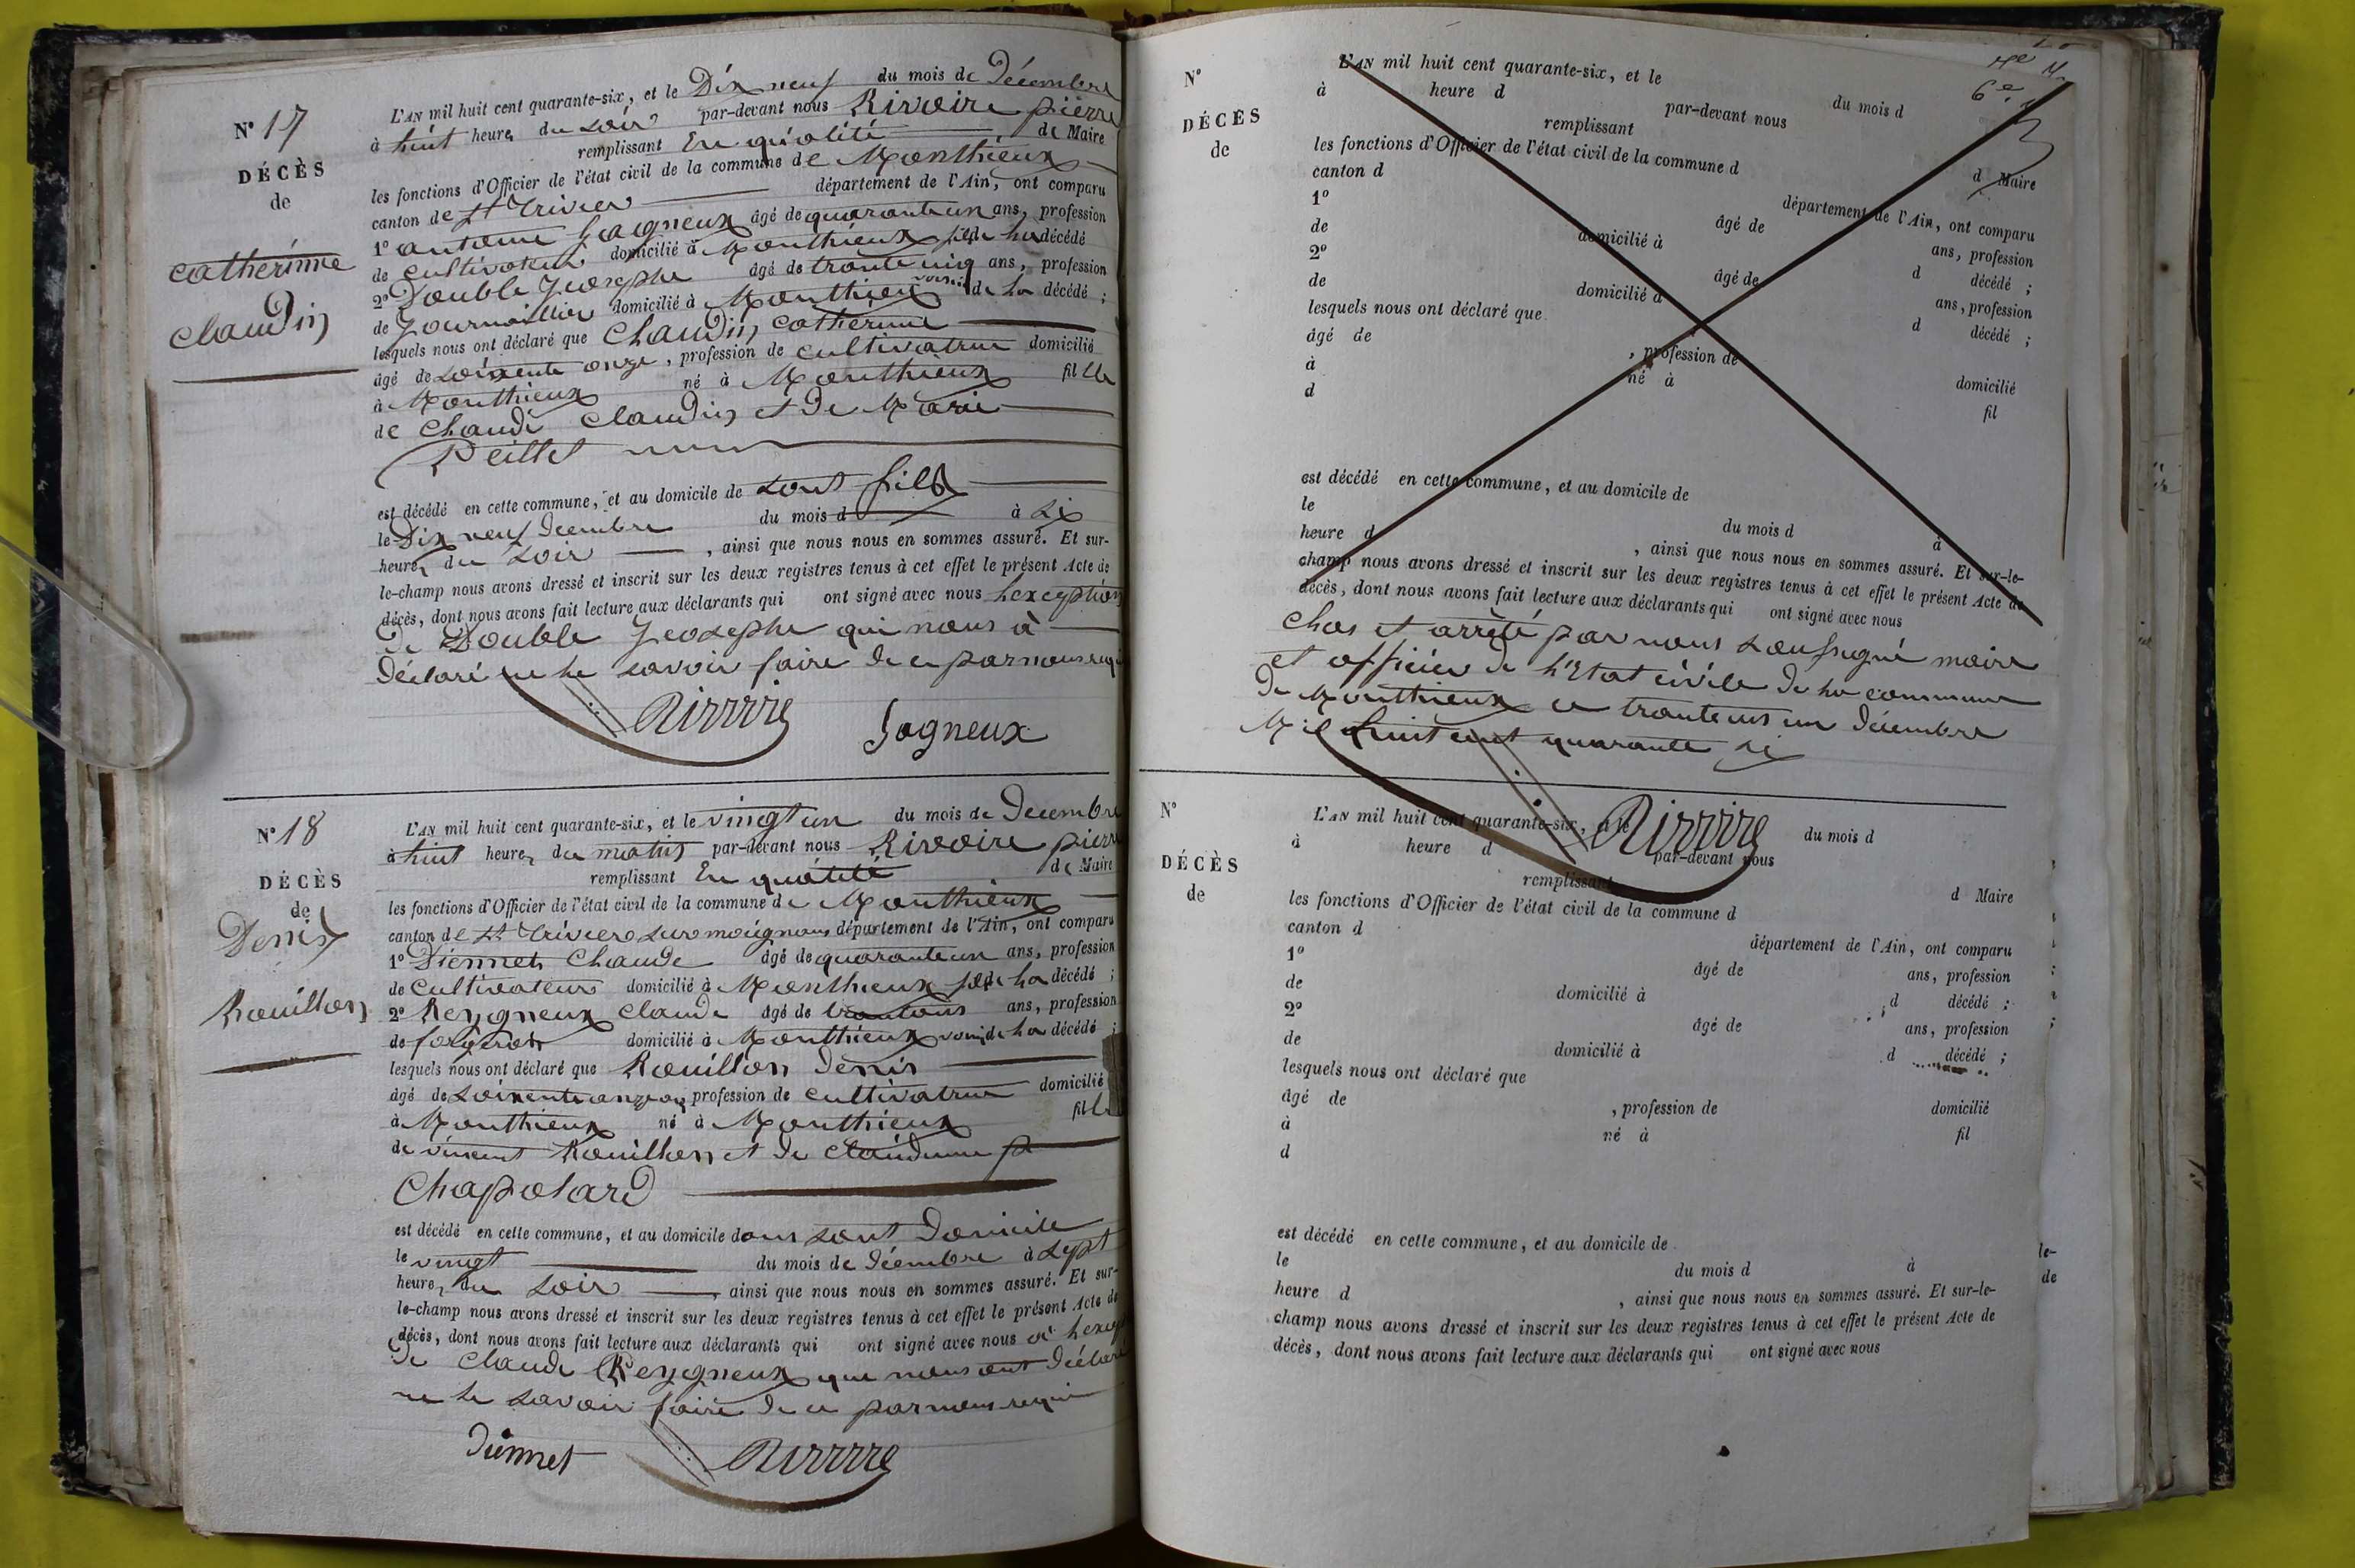 N° 17
DÉCÈS
de
Catherinne
Claudin
L'AN mil huit cent quarante-six, et le Dix neuf du mois de Décembre
à huit heures du soir par-devant nous Rivoire pierre
remplissant En quálité de Maire
les fonctions d'Officier de l'état civil de la commune de Monthieux
canton de St Trivier département de l'Ain, ont comparu
1° antoine Gagneux âgé de quarante un ans, profession
de cultivateur domicilié à Monthieux fils de la décédé
2° Double Jeosephe âgé de trante cinq ans, profession
de Journaillier domicilié à Monthieux voisin de la décédé ;
lesquels nous ont déclaré que Claudin Catherine
âgé de soixente onze, profession de cultivatrice domicilié
à Monthieux né à Monthieux fille
de Claude Claudin et de Marie
Peillet
est décédé en cette commune, et au domicile de sont fils
le Dix neuf Decembre du mois d à six
heures du soir , ainsi que nous nous en sommes assuré. Et sur-
le-champ nous avons dressé et inscrit sur les deux registres tenus à cet effet le présent Acte de
décès, dont nous avons fait lecture aux déclarants qui ont signé avec nous lexception
de Double Jeosephe qui nous à
Déclaré ne le savoir faire de ce par nous requi
Rivoire Gagneux
N° 18
DÉCÈS
de
Denis
Rouillon
L'AN mil huit cent quarante-six, et le vingt un du mois de Decembre
à huit heures du matin par-devant nous Rivoire pierre
remplissant En quálité de Maire
les fonctions d'Officier de l'état civil de la commune de Monthieux
canton de St Trivier sur moignans département de l'Ain, ont comparu
1° Diennet Claude âgé de quarante un ans, profession
de Cultivateur domicilié à Monthieux fils de la décédé ;
2° Reygneux Claude âgé de ans, profession
de forgeron domicilié à Monthieux voisin de la décédé ;
lesquels nous ont déclaré que Rouillon Denis
âgé de soixente onze ans profession de cultivatrice domicilié
à Monthieux né à Monthieux fille
de vincent Rouillon et de Claudinne
Chapolard
est décédé en cette commune, et au domicile dans sont Domicile
le vingt du mois de Décembre à sept
heures du soir , ainsi que nous nous en sommes assuré. Et sur-
le-champ nous avons dressé et inscrit sur les deux registres tenus à cet effet le présent Acte de
décès, dont nous avons fait lecture aux déclarants qui ont signé avec nous
de Claude Reygneux que nous ont Déclaré
ne le savoir faire de ce par nous requi
Diennet Rivoire
6e
N°
DÉCÈS
de
L'AN mil huit cent quarante-six, et le du mois d
à heure d par-devant nous
remplissant d Maire
les fonctions d'Officier de l'état civil de la commune d
canton d département de l'Ain, ont comparu
1° âgé de ans, profession
de domicilié à d décédé ;
2° âgé de ans, profession
de domicilié à d décédé ;
lesquels nous ont déclaré que
âgé de , profession de domicilié
à né à fil
d
est décédé en cette commune, et au domicile de
le du mois d à
heure d , ainsi que nous nous en sommes assuré. Et sur-le-
champ nous avons dressé et inscrit sur les deux registres tenus à cet effet le présent Acte de
décès, dont nous avons fait lecture aux déclarants qui ont signé avec nous
Clos et arrêté par nous soussigné maire
et officier de l'Etat civile de la commune
de Monthieux ce trante un décembre
Mil huit cent quarante six
Rivoire
N°
DÉCÈS
de
L'AN mil huit cent quarante-six, et le du mois d
à heure d par-devant nous
remplissant d Maire
les fonctions d'Officier de l'état civil de la commune d
canton d département de l'Ain, ont comparu
1° âgé de ans, profession
de domicilié à d décédé ;
2° âgé de ans, profession
de domicilié à d décédé ;
lesquels nous ont déclaré que
âgé de , profession de domicilié
à né à fil
d
est décédé en cette commune, et au domicile de
le du mois d à
heure d , ainsi que nous nous en sommes assuré. Et sur-le-
champ nous avons dressé et inscrit sur les deux registres tenus à cet effet le présent Acte de
décès, dont nous avons fait lecture aux déclarants qui ont signé avec nous
le-
de